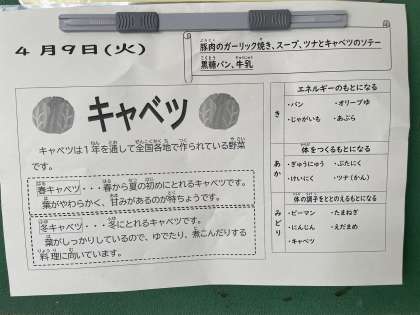 ４月９日(火)
豚肉のガーリック焼き、スープ、ツナとキャベツのソテー
黒糖パン、牛乳
キャベツ
キャベツは１年を通して全国各地で作られている野菜
です。
春キャベツ・・・春から夏の初めにとれるキャベツです。
葉がやわらかく、甘みがあるのが特ちょうです。
冬キャベツ・・・冬にとれるキャベツです。
葉がしっかりしているので、ゆでたり、煮こんだりする
料理に向いています。
き
エネルギーのもとになる
・パン ・オリーブゆ
・じゃがいも ・あぶら
あか
体をつくるもとになる
・ぎゅうにゅう ・ぶたにく
・けいにく ・ツナ(かん)
みどり
体の調子をととのえるもとになる
・ピーマン ・たまねぎ
・にんじん ・えだまめ
・キャベツ